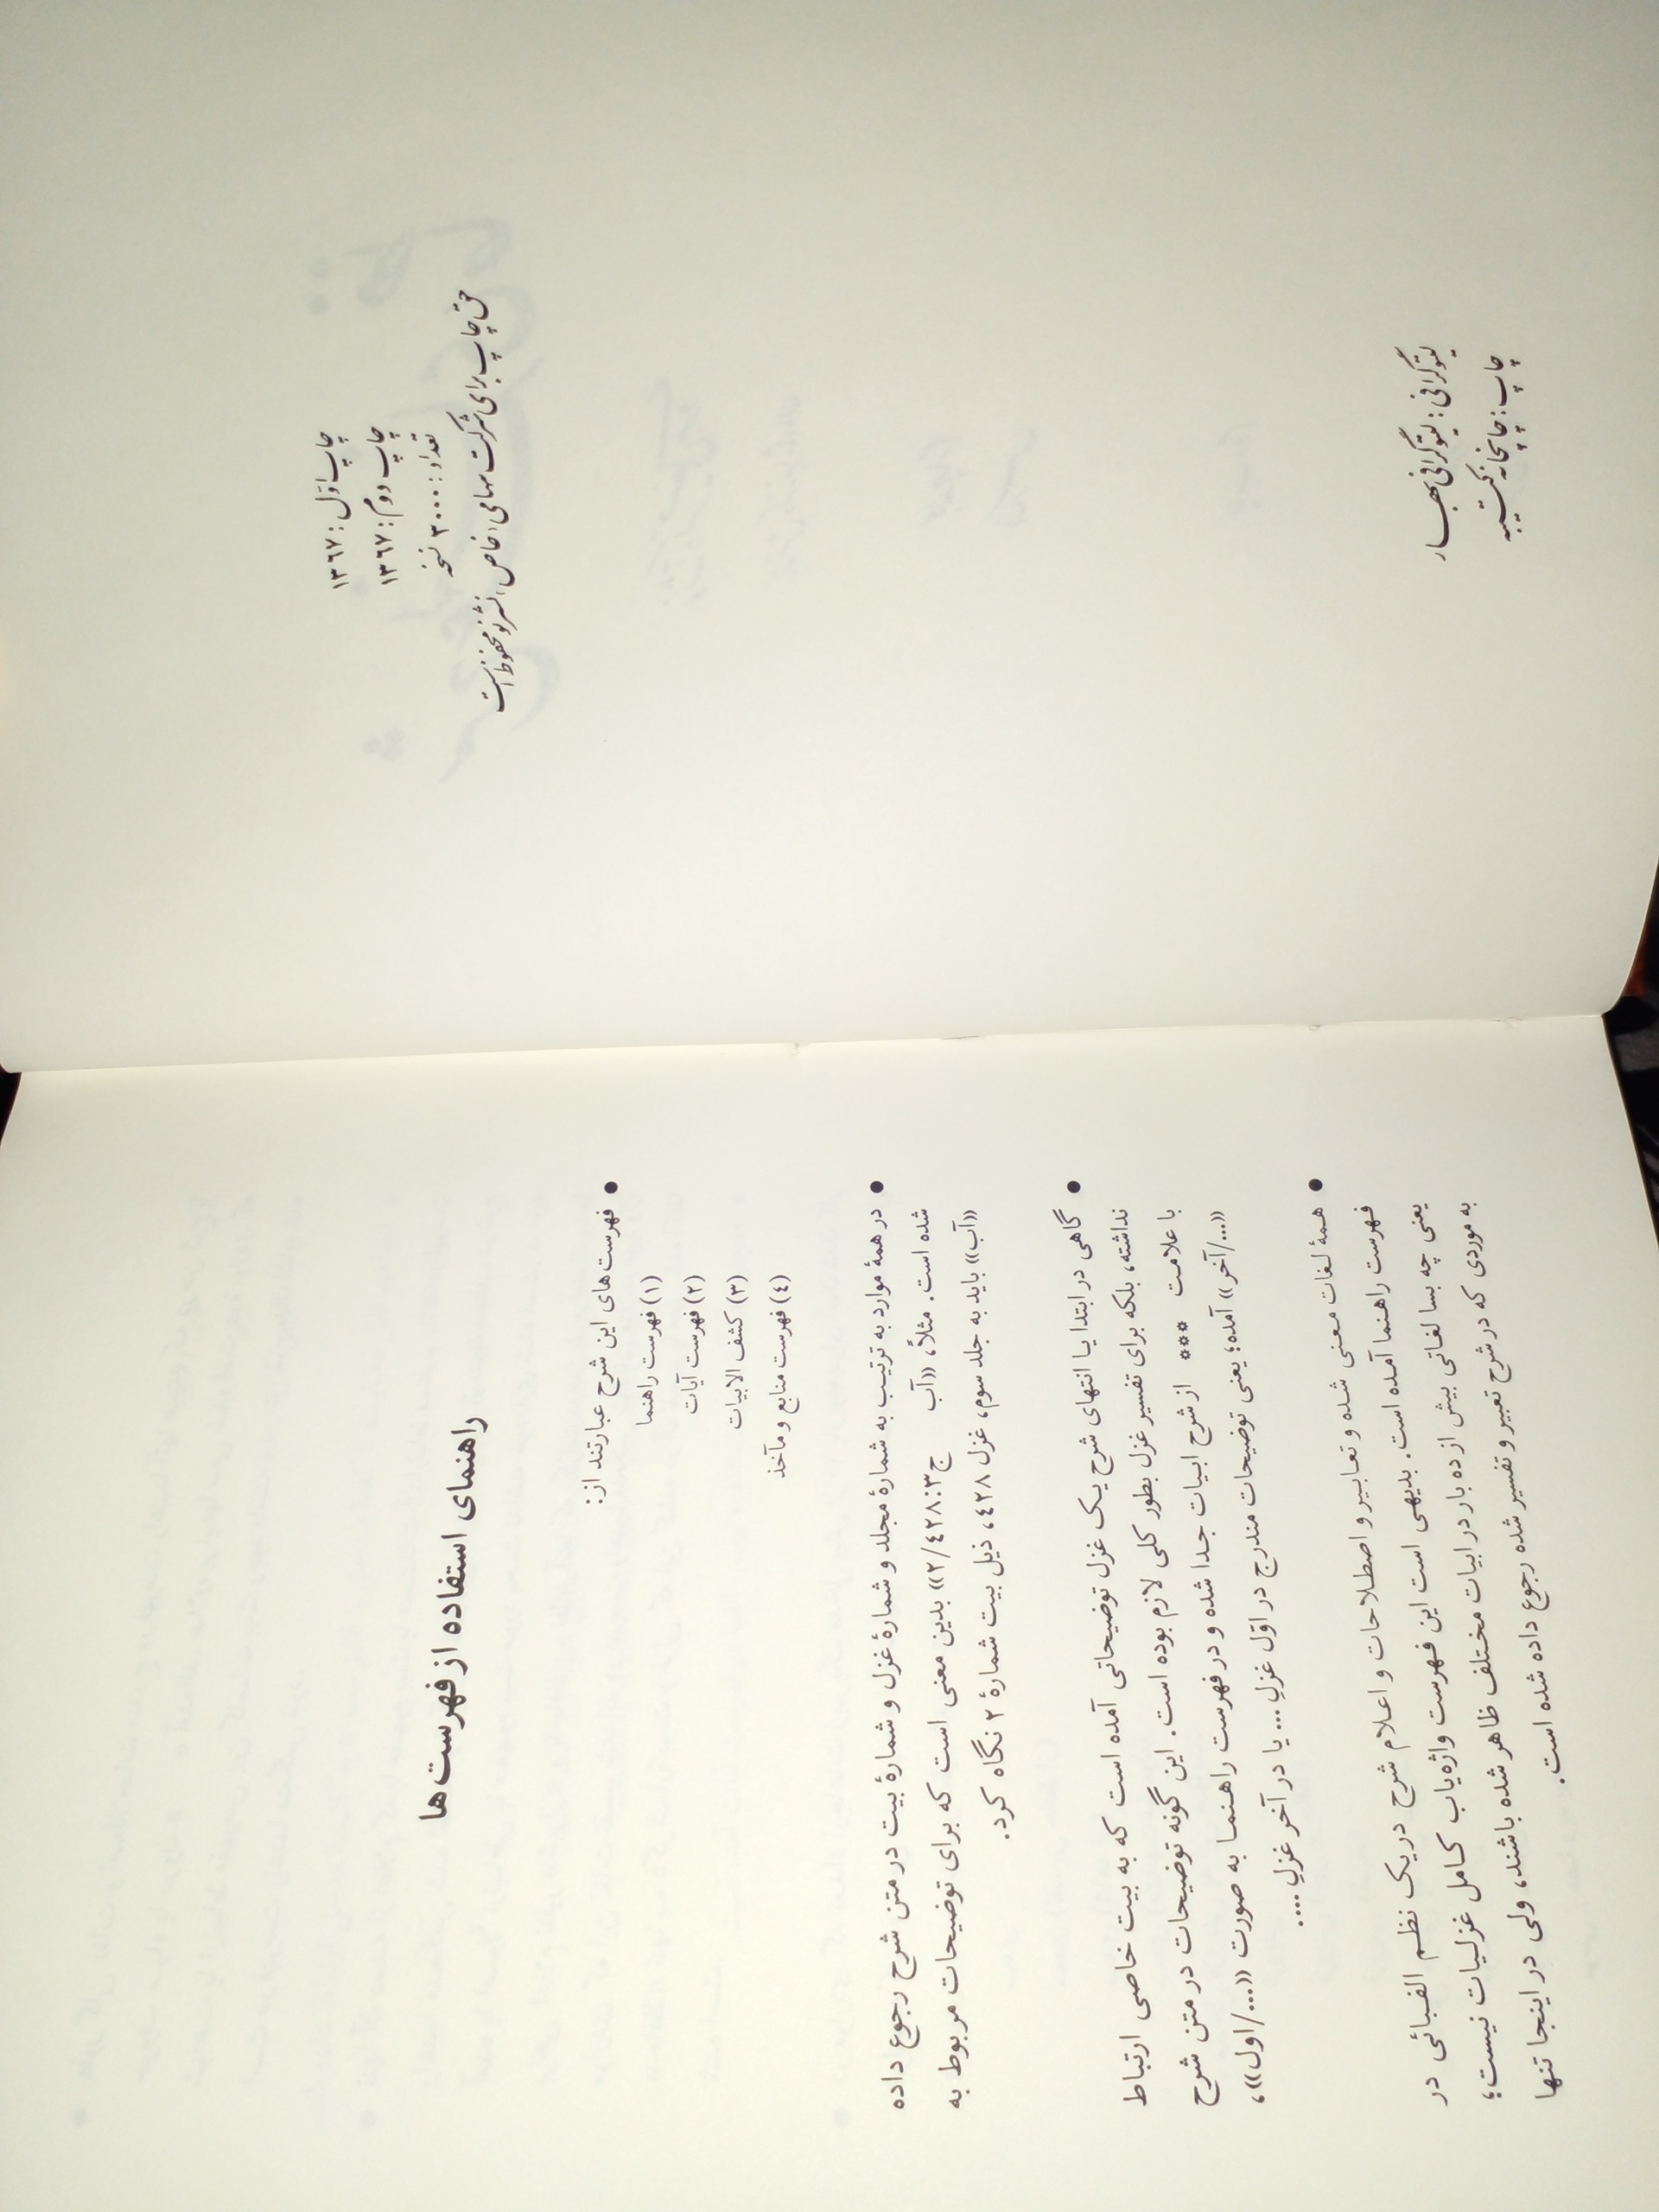 چاپ اوّل: ۱۳٦۷
چاپ دوم: ۱۳٦۷
تعداد: ۳۰۰۰ نسخه
حق چاپ برای شرکت سهامی (خاص) نشر نو محفوظ است
لیتوگرافی: لیتوگرافی بهار
چاپ: چاپخانه کتیبه
راهنمای استفاده از فهرست ها
• فهرست های این شرح عبارتند از:
(۱) فهرست راهنما
(۲) فهرست آیات
(۳) کشف الابیات
(٤) فهرست منابع و مآخذ
• در همهٔ موارد به ترتیب به شمارهٔ مجلد و شمارهٔ غزل و شمارهٔ بیت در متن شرح رجوع داده
شده است. مثلاً، «آب ج۳: ٤۲۸/۲» بدین معنی است که برای توضیحات مربوط به
«آب» باید به جلد سوم، غزل ٤۲۸، ذیل بیت شمارهٔ ۲ نگاه کرد.
• گاهی در ابتدا یا انتهای شرح یک غزل توضیحاتی آمده است که به بیت خاصی ارتباط
نداشته، بلکه برای تفسیر غزل بطور کلی لازم بوده است. این گونه توضیحات در متن شرح
با علامت *** از شرح ابیات جدا شده و در فهرست راهنما به صورت «.../اول»،
«.../آخر» آمده؛ یعنی توضیحات مندرج در اوّل غزلِ... یا در آخر غزلِ....
• همهٔ لغات معنی شده و تعابیر و اصطلاحات و اعلام شرح در یک نظم الفبائی در
فهرست راهنما آمده است. بدیهی است این فهرست واژه یاب کامل غزلیات نیست؛
یعنی چه بسا لغاتی بیش از ده بار در ابیات مختلف ظاهر شده باشند، ولی در اینجا تنها
به موردی که در شرح تعبیر و تفسیر شده رجوع داده شده است.